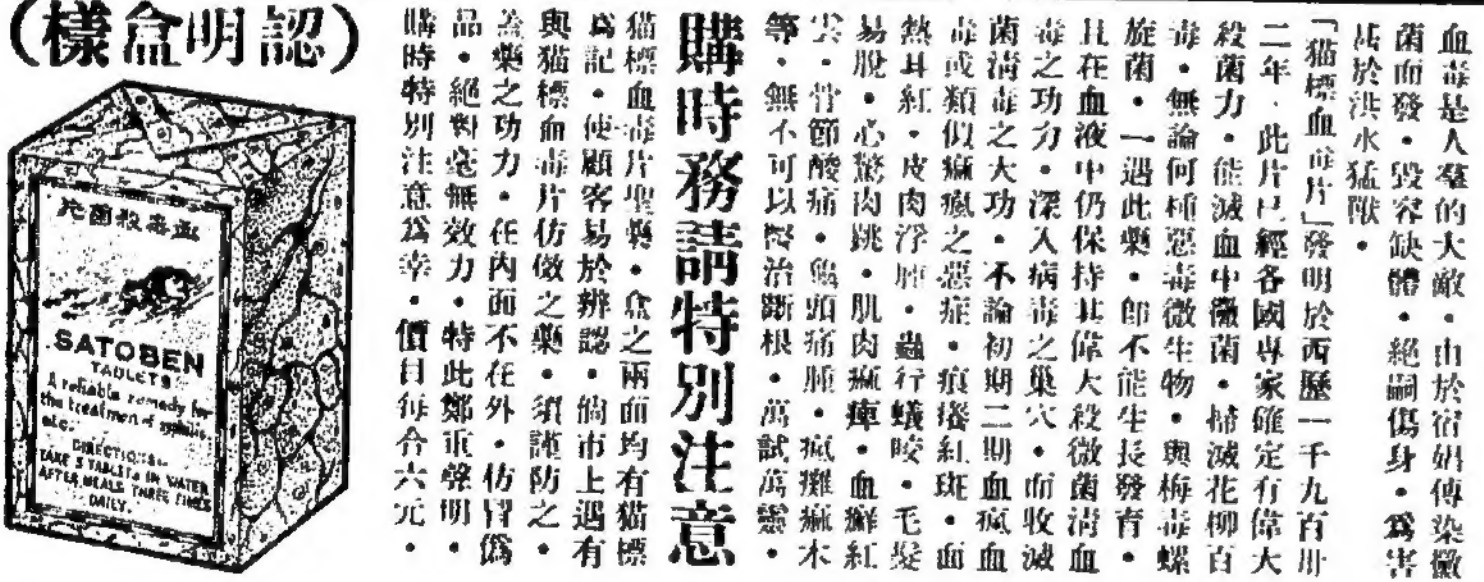 血毒是人羣的大敵・由於宿娼傳染黴
菌而發・毀容缺體・絕嗣傷身・爲害
甚於洪水猛獸・
「猫標血毒片」發明於西歷一千九百卅
二年・此片已經各國專家確定有偉大
殺菌力・能滅血中黴菌・掃滅花柳百
毒・無論何種惡毒微生物・與梅毒螺
旋菌・一遇此藥・卽不能生長發育・
且在血液中仍保持其偉大殺微菌清血
毒之功力・深入病毒之巢穴・而收滅
菌清毒之大功・不論初期二期血瘋血
毒或類似痲瘋之惡症・痕癢紅斑・面
熱耳紅・皮肉浮腫・蟲行蟻咬・毛髮
易脫・心驚肉跳・肌肉痲痺・血癬紅
雲・骨節酸痛・頭痛腫・瘋癱痲木
等・無不可以醫治斷根・萬試萬靈・
購時務請特別注意
猫標血毒片聖藥・盒之兩面均有猫標
爲記・使顧客易於辨認・倘市上遇有
與猫標血毒片仿傚之藥・須謹防之・
蓋藥之功力・在內面不在外・仿冒僞
品・絕對毫無效力・特此鄭重聲明・
購時特別注意爲幸・價目每合六元・
(認明盒樣)
血毒殺菌片
SATOBEN
TABLETS
A reliable remedy for
the treatment of syphilis
etc.
DIRECTIONS:-
TAKE 3 TABLETS IN WATER
AFTER MEALS THREE TIMES
DAILY.